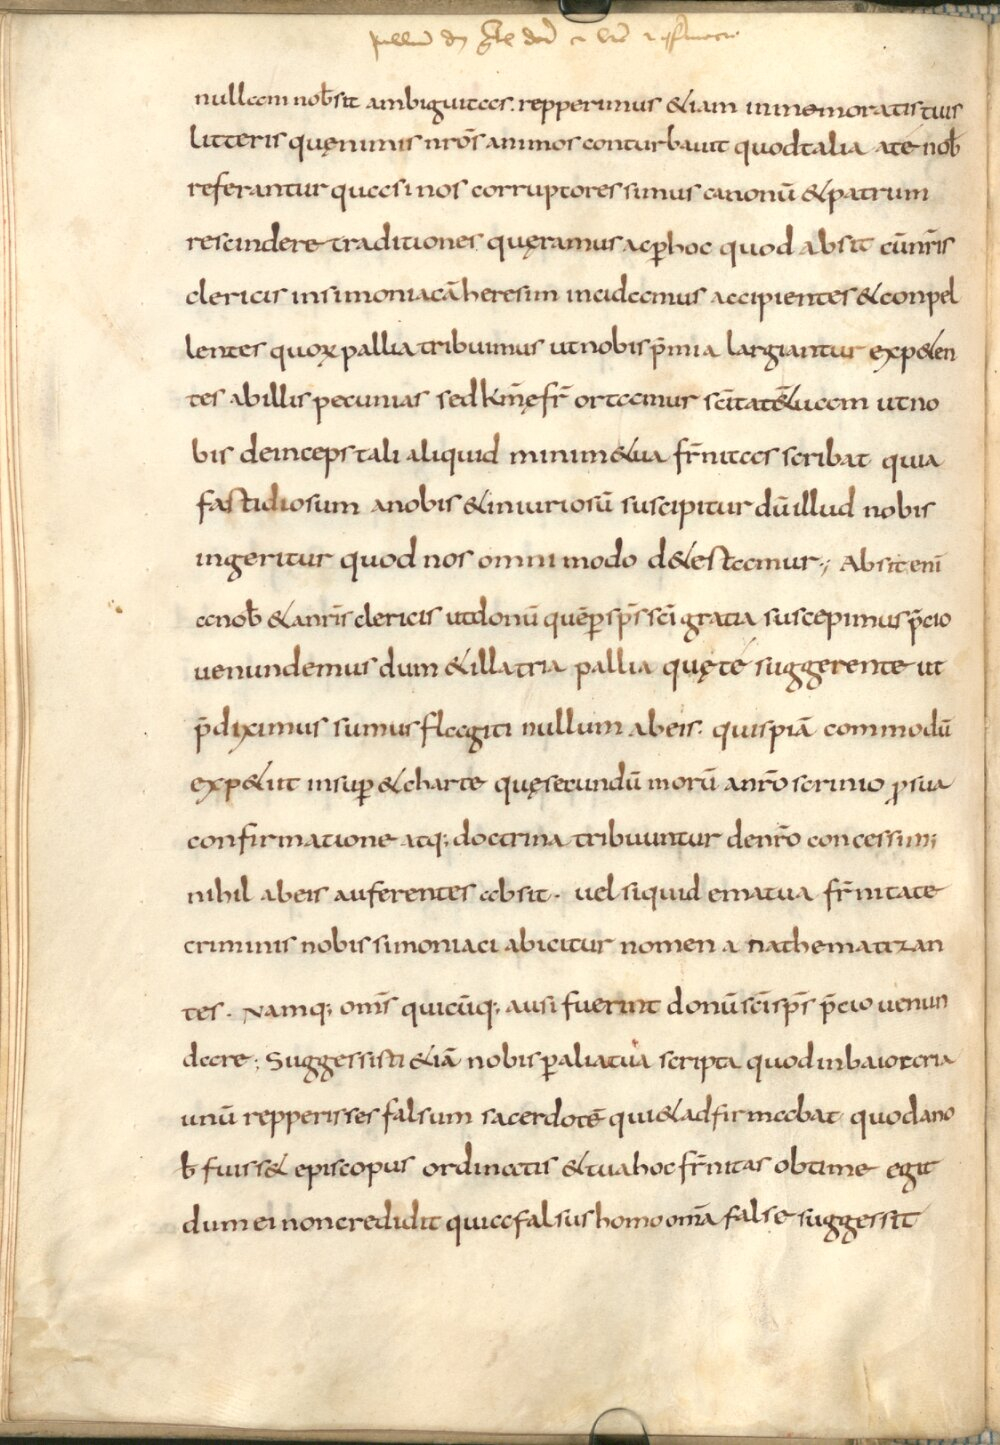 nullam nob̄ sit ambiguitas. repperimus &iam in memoratis tuis
litteris quę nimis nr̄os animos conturbauit quod talia a té nob̄
referantur quasi nos corruptores simus canonū & patrum
rescindere traditiones quęramus ac ꝑ hoc quod absit cū nr̄is
clericis in simoniacā heresim incidamus accipientes & conpel
lentes quoꝝ pallia tribuimus ut nobis p̄mia largiantur exp&en
tes ab illis pecunias sed km̄ę fr̄ ortamur sc̄itatē &uam ut no
bis deinceps tali aliquid minim& ua fr̄nitas scribat quia
fastidiosum a nobis & iniuriosū suscipitur dū illud nobis
ingeritur quod nos omnimodo d&estamur; Absit enī
a nob̄ & a nr̄is clericis ut donū quē ꝑ sp̄s sc̄i gratia suscepimus p̄cio
uenundemus dum & illa tria pallia quę té suggerente ut
p̄diximus sumus flagiti nullum ab eis. quispiā commodū
exp&iit insuꝑ & charte quę secundū morū a nr̄o scrinio ꝓ sua
confirmatione atq; doctrina tribuuntur de nr̄o concessim;
nihil ab eis auferentes absit. uel siquid ematua fr̄nitate
criminis nobis simoniaci abicitur nomen anathematizan
tes. Namq; om̄s quicūq; ausi fuerint donū sc̄i sp̄s p̄cio uenun
dare; Suggessisti &iā nobis ꝑ alia tua scripta quod in baioaria
unū repperisses falsum sacerdotē qui & adfirmabat quod a no
b̄ fuiss& episcopus ordinatis & tua hoc fr̄nitas obtime egit
dum ei non credidit quia falsus homo om̄a false suggessit